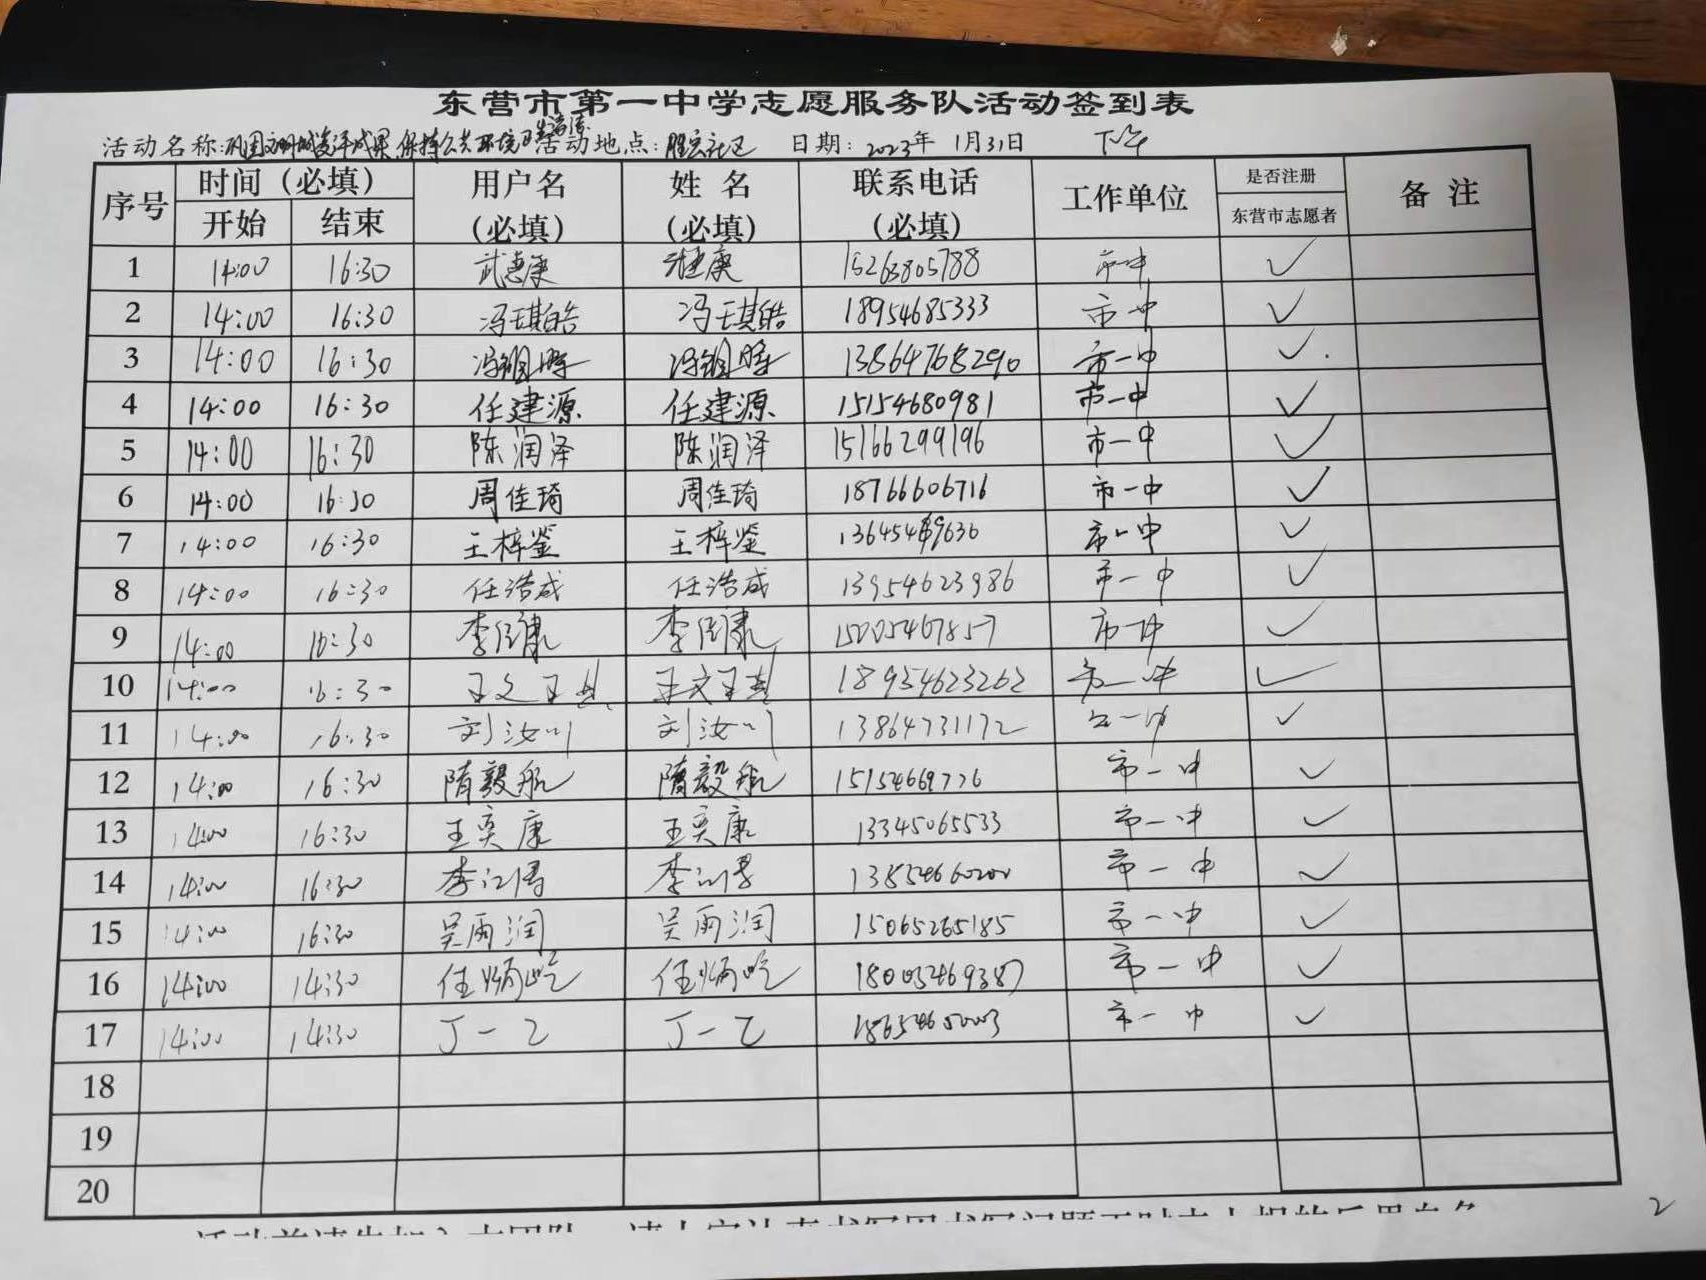 东营市第一中学志愿服务队活动签到表
活动名称:巩固文明城市创建成果,保持公共环境卫生清洁 活动地点:胜宏社区 日期:2023年 1月31日 下午
序号 时间(必填) 用户名 姓 名 联系电话 工作单位 是否注册 备 注
开始 结束 (必填) (必填) (必填) 东营市志愿者
1 14:00 16:30 武惠康 15263805788 市一中 ✓
2 14:00 16:30 冯琪皓 冯琪皓 18954685333 市一中 ✓
3 14:00 16:30 13864768290 市一中 ✓
4 14:00 16:30 任建源 任建源 15154680981 市一中 ✓
5 14:00 16:30 陈润泽 陈润泽 15166299196 市一中 ✓
6 14:00 16:30 周佳琦 周佳琦 18766606716 市一中 ✓
7 14:00 16:30 王梓鉴 王梓鉴 市一中 ✓
8 14:00 16:30 任浩成 任浩成 13954623986 市一中 ✓
9 14:00 16:30 李佳康 李佳康 15005467857 市一中 ✓
10 14:00 16:30 王文琪 王文琪 18954623262 市一中 ✓
11 14:00 16:30 刘汝川 刘汝川 13864731172 市一中 ✓
12 14:00 16:30 隋毅航 隋毅航 15154669776 市一中 ✓
13 14:00 16:30 王奕康 王奕康 13345065533 市一中 ✓
14 14:00 16:30 市一中 ✓
15 14:00 16:30 吴雨润 吴雨润 15065265185 市一中 ✓
16 14:00 14:30 任炳屹 任炳屹 18005469387 市一中 ✓
17 14:00 14:30 丁一乙 丁一乙 18654605003 市一中 ✓
18
19
20
2